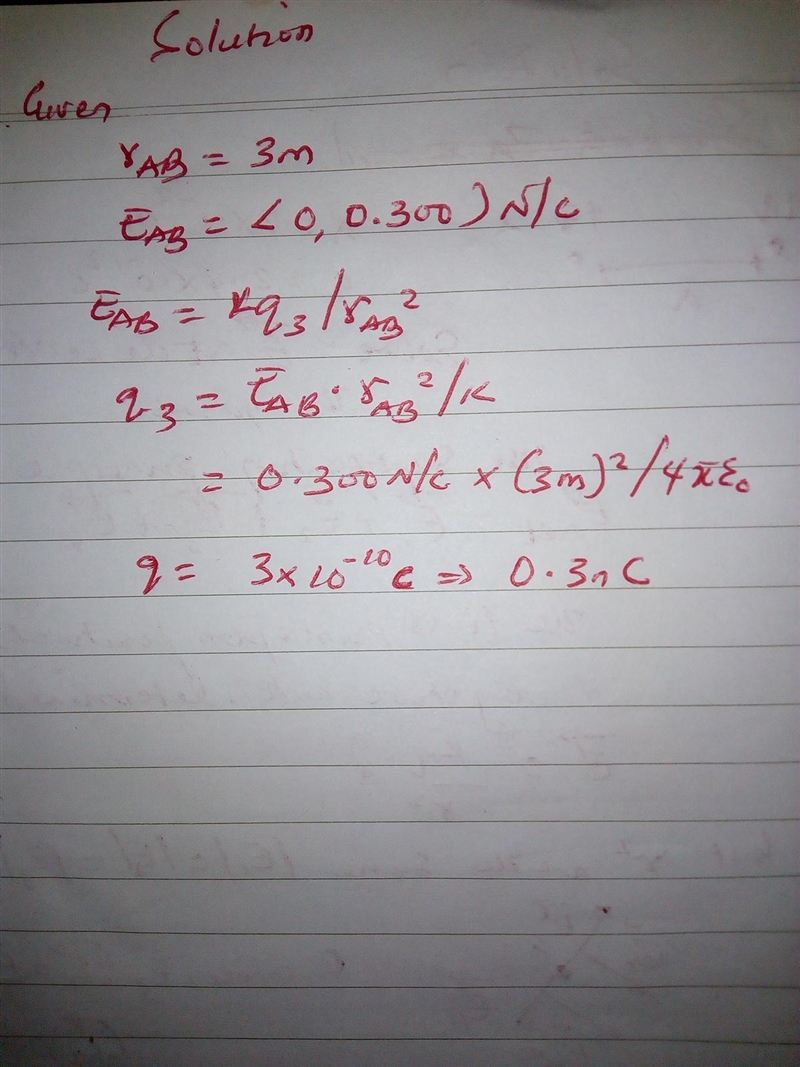 Solution
Given
r_AB = 3m
Ē_AB = <0, 0.300) N/C
Ē_AB = kq₃/r_AB²
q₃ = Ē_AB · r_AB²/k
= 0.300 N/C × (3m)²/4πε₀
q = 3×10⁻¹⁰ C ⇒ 0.3nC